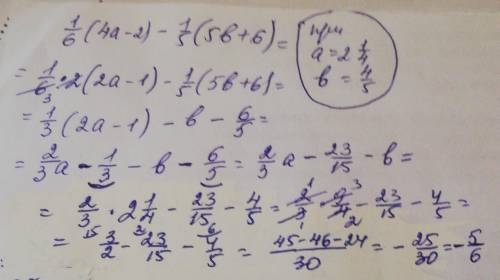 1/6 (4a-2) - 1/5 (5b+6) =
при
a = 2 1/4
b = 4/5
= 1/6₃ · 2 (2a-1) - 1/5 (5b+6) =
= 1/3 (2a-1) - b - 6/5 =
= 2/3 a - 1/3 - b - 6/5 = 2/3 a - 23/15 - b =
= 2/3 · 2 1/4 - 23/15 - 4/5 = 2¹/3₁ · 9³/4₂ - 23/15 - 4/5 =
= ¹⁵3/2 - ²23/15 - ⁶4/5 = (45-46-24)/30 = - 25/30 = - 5/6